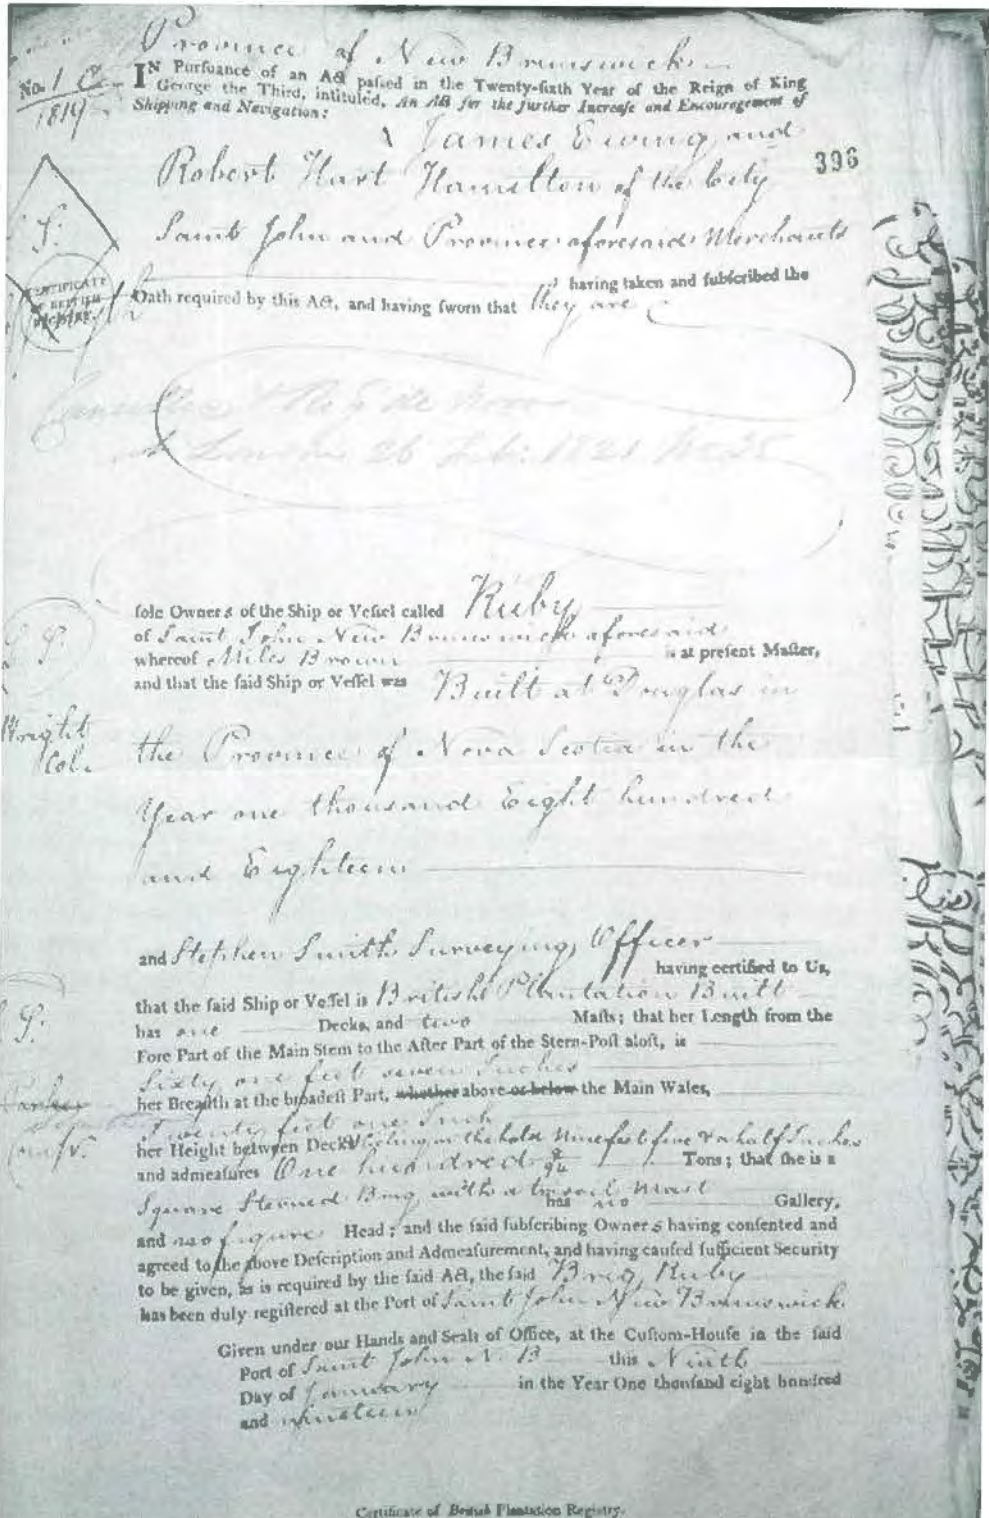 Province of New Brunswick
No. 1
1819
IN Purſuance of an Act paſſed in the Twenty-ſixth Year of the Reign of King
George the Third, intituled, An Act for the further Increaſe and Encouragement of
Shipping and Navigation:
James Ewing and
396
Robert Hart Hamilton of the City
Saint John and Province aforesaid Merchants
S:
CERTIFICATE
OF BRITISH
REGISTRY.
having taken and ſubſcribed the
Oath required by this Act, and having ſworn that they are
Cancelled & Reg de Novo
at London 26 Feb: 1821
ſole Owners of the Ship or Veſſel called Ruby
of Saint John New Brunswick aforesaid
S:
whereof Miles Brown is at preſent Maſter,
and that the ſaid Ship or Veſſel was Built at Douglas in
Wright
Col.
the Province of Nova Scotia in the
Year one thousand Eight hundred
and Eighteen
and Stephen Smith Surveying Officer
having certified to Us,
that the ſaid Ship or Veſſel is British Plantation Built
S:
has one Decks, and two Maſts; that her Length from the
Fore Part of the Main Stem to the After Part of the Stern-Poſt aloft, is
Sixty one feet seven Inches
her Breadth at the broadeſt Part, whether above or below the Main Wales,
Twenty feet one Inch
her Height between Decks in the hold Nine feet five & a half Inches
and admeaſures One hundred Tons; that ſhe is a
Square Sterned Brig with a trysail Mast has no Gallery,
and no figure Head; and the ſaid ſubſcribing Owners having conſented and
agreed to the above Deſcription and Admeaſurement, and having cauſed ſufficient Security
to be given, as is required by the ſaid Act, the ſaid Brig Ruby
has been duly regiſtered at the Port of Saint John New Brunswick
Given under our Hands and Seals of Office, at the Cuſtom-Houſe in the ſaid
Port of Saint John N. B this Ninth
Day of January in the Year One thouſand eight hundred
and nineteen
Certificate of British Plantation Regiſtry.